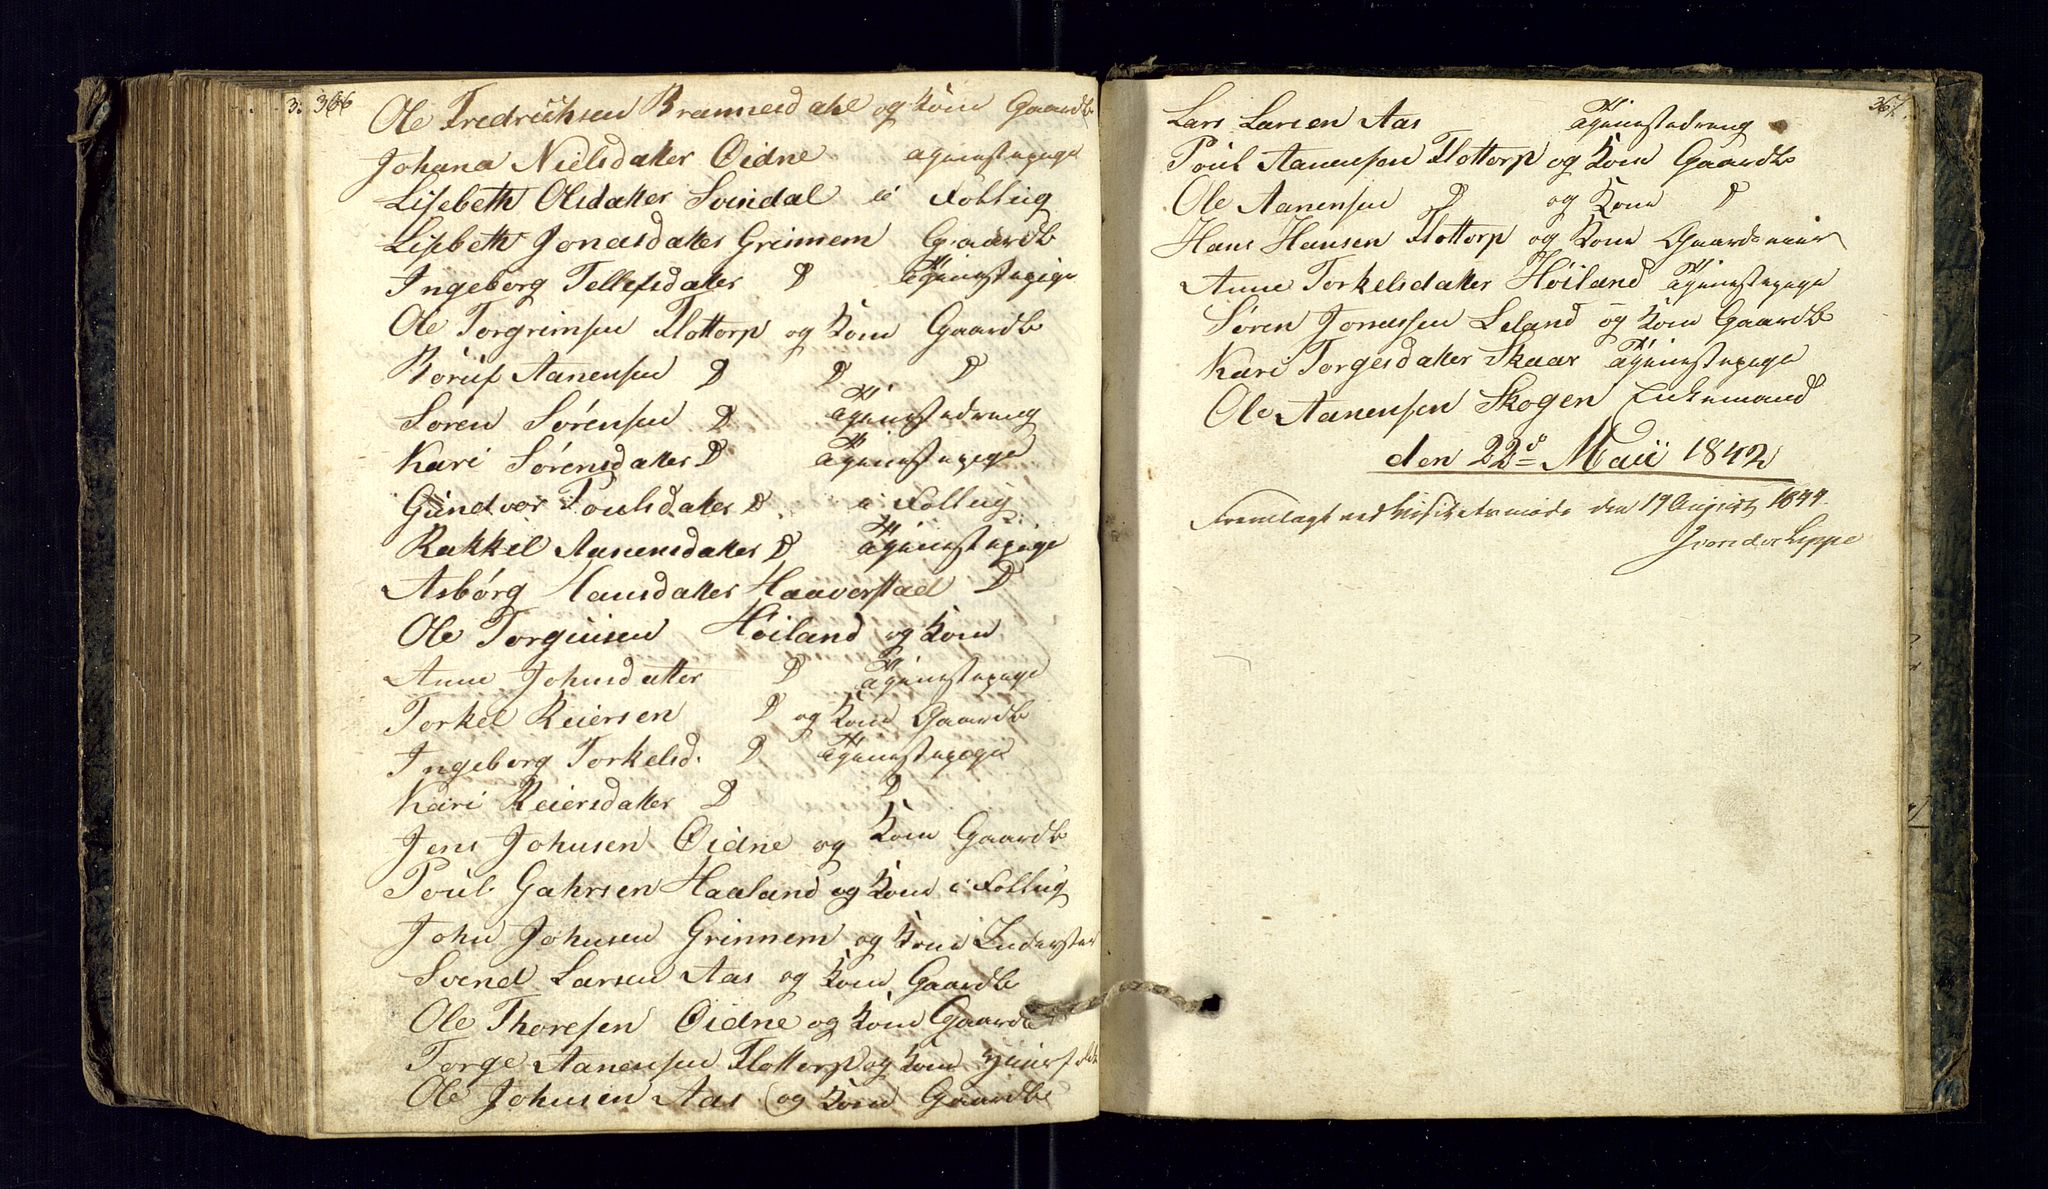 3. 366
Ole Fredrichsen Brannesdahl og Kone Gaardb
Johana Nielsdatter Øidne Tjenestepige
Lisebeth Olsdatter Svindal i Follug
Lisebeth Jonasdatter Grinnem Gaardb
Ingeborg Tellefsdatter D Tjenestepige
Ole Torgrimsen Flottorp og Kone Gaardb
Aanensen D D D
Søren Sørensen D Tjenestedreng
Kari Sørensdatter D Tjenestepige
Gundvor Poulsdatter D i Follug
Rakkel Aanensdatter D Tjenestepige
Asbørg Hansdatter Haaverstad D
Ole Torgiusen Høiland og Kone
Anne Johnsdatter D Tjenestepige
Torkel Reiersen D og Kone Gaardb
Ingeborg Torkelsd. D Tjenestepige
Kari Reiersdatter D D
Jens Johnsen Øidne og Kone Gaardb
Poul Gahrsen Haaland og Kone i Follug
John Johnsen Grinnem og Kone
Svend Larsen Aas og Kone Gaardb
Ole Thoresen Øidne og Kone Gaardb
Torge Aanensen Flottorp og Kone
Ole Johnsen Aas og Kone Gaardb
367.
Lars Larsen Aas Tjenestedreng
Poul Aanensen Flottorp og Kone Gaardb
Ole Aanensen D og Kone D
Hans Hansen Flottorp og Kone Gaardeeier
Anne Torkelsdatter Høiland Tjenestepige
Søren Jonassen Leland og Kone Gaardb
Kari Torgesdatter Skaar Tjenestepige
Ole Aanensen Skogen Enkemand
den 22d Maii 1842
Fremlagt ved Visitatsmøde den 19 August 1844
J von der Lippe